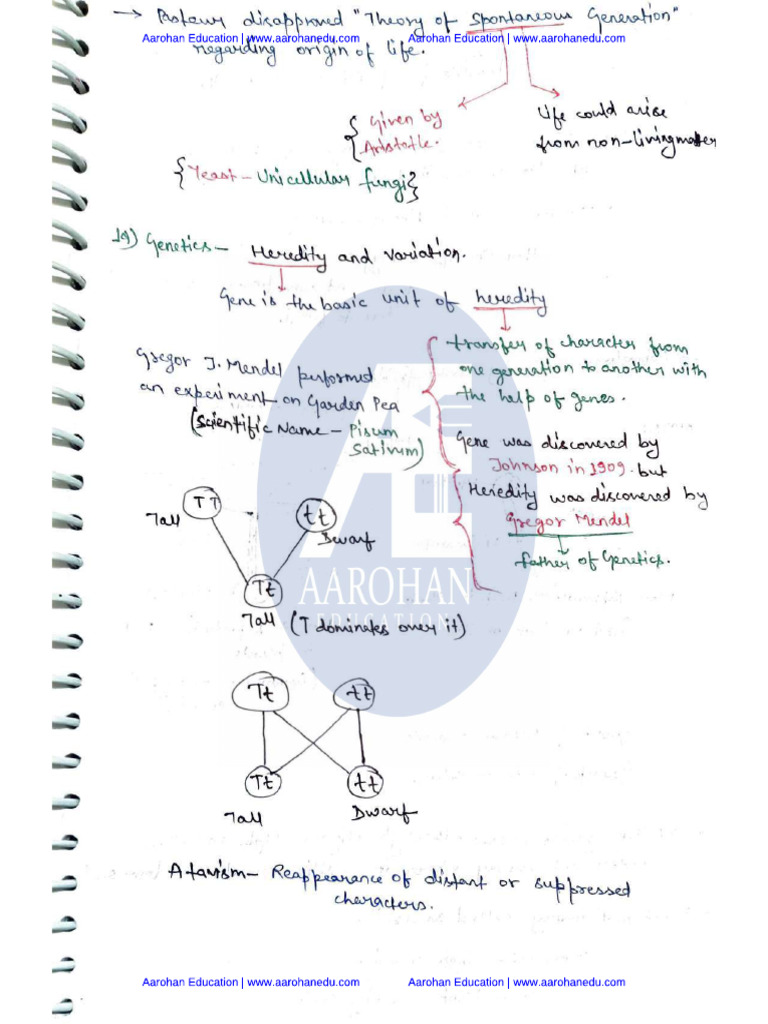 → Pasteur disapproved "Theory of Spontaneous Generation"
Aarohan Education | www.aarohanedu.com Aarohan Education | www.aarohanedu.com
regarding origin of life.
{Given by
Aristotle.
Life could arise
from non-living matter
{Yeast - Unicellular fungi}
19) Genetics - Heredity and variation.
Gene is the basic unit of heredity
transfer of character from
one generation to another with
the help of genes.
Gregor J. Mendel performed
an experiment on Garden Pea
(Scientific Name - Pisum
Sativum)
Gene was discovered by
Johnson in 1909. but
Heredity was discovered by
Gregor Mendel
father of Genetics.
TT
Tall
tt
Dwarf
Tt
Tall (T dominates over it)
AE
AAROHAN
EDUCATION
Tt tt
Tt tt
Tall Dwarf
Atavism - Reappearance of distant or suppressed
characters.
Aarohan Education | www.aarohanedu.com Aarohan Education | www.aarohanedu.com